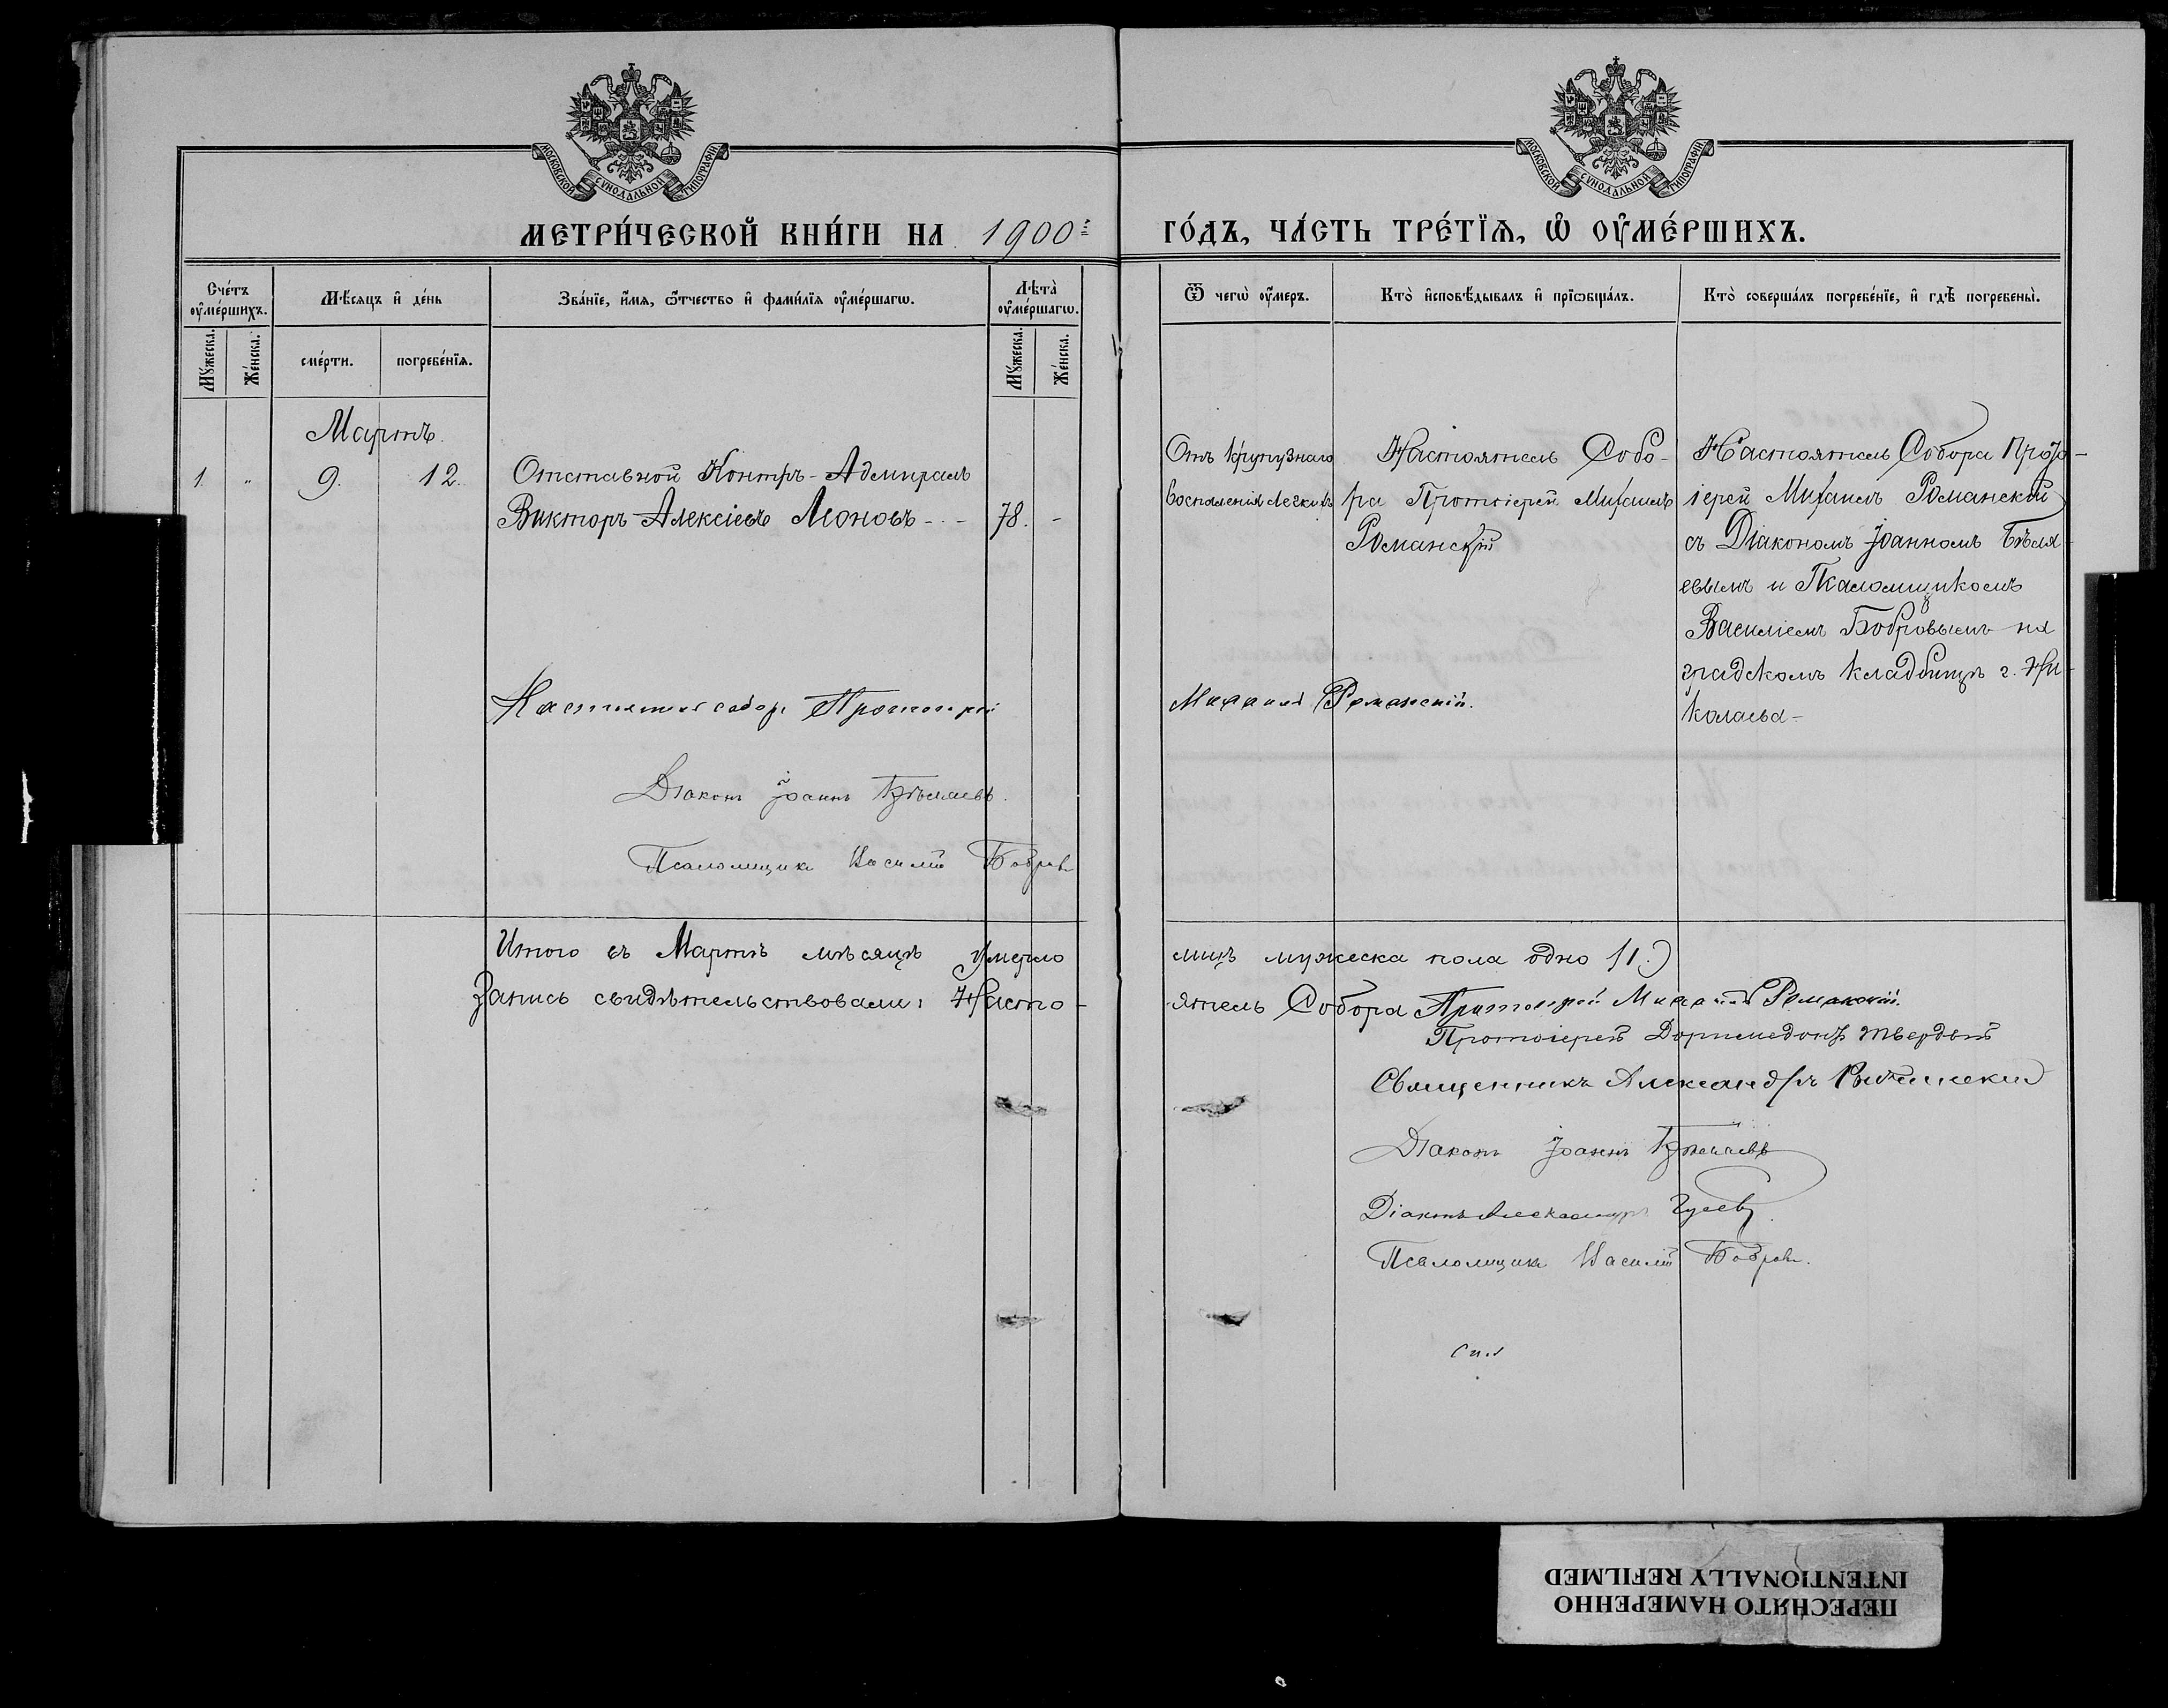 МОСКОВСКОЙ СѴНОДАЛЬНОЙ ТИПОГРАФІИ
МОСКОВСКОЙ СѴНОДАЛЬНОЙ ТИПОГРАФІИ
МЕТРИ́ЧЕСКОЙ КНИ́ГИ НА 1900й
ГО́ДЪ, ЧА́СТЬ ТРЕ́ТЇѦ, Ѡ҆ ОУ҆МЕ́РШИХЪ.
Сче́тъ оу҆ме́ршихъ.
Мꙋ́жеска.
Же́нска.
М́ѣсяцъ и҆ де́нь
сме́рти.
погребе́нїѧ.
Зва́нїе, и҆́мѧ, ѻ҆́тчество и҆ фами́лїѧ оу҆ме́ршагѡ.
Лѣта̀ оу҆ме́ршагѡ.
Мꙋ́жеска.
Же́нска.
Ѿ чегѡ̀ оу҆́меръ.
Кто̀ и҆сповѣ́дывалъ и҆ прїѡбща́лъ.
Кто̀ соверша́лъ погребе́нїе, и҆ гдѣ̀ погребены̀.
Мартъ.
1. " 9. 12. Отставной Контръ-Адмиралъ
Викторъ Алексіевъ Леоновъ - - 78. -
Отъ крупузнаго
Воспаленія Легкихъ
Настоятель Собо-
ра Протоіерей Михаилъ
Романскій
Настоятель Собора Прото-
іерей Михаилъ Романскій
съ Діакономъ Іоанномъ Бѣля-
евымъ и Псаломщикомъ
Василіемъ Бобровымъ на
градскомъ кладбищѣ г. Ни-
колаева-
Настоятель собор. Протоіерей Михаилъ Романскій.
Діаконъ Іоаннъ Бѣляевъ.
Псаломщикъ Василій Бобровъ
Итого въ Мартѣ мѣсяцѣ умерло лицъ мужеска пола одно (1.)
Запись свидѣтельствовали: Насто-ятель Собора Протоіерей Михаилъ Романскій.
Протоіерей Доримедонтъ Твердый
Священникъ Александръ
Діаконъ Іоаннъ Бѣляевъ
Діаконъ Александръ Гусевъ
Псаломщикъ Василій Бобровъ.
ПЕРЕСНЯТО НАМЕРЕННО
INTENTIONALLY REFILMED